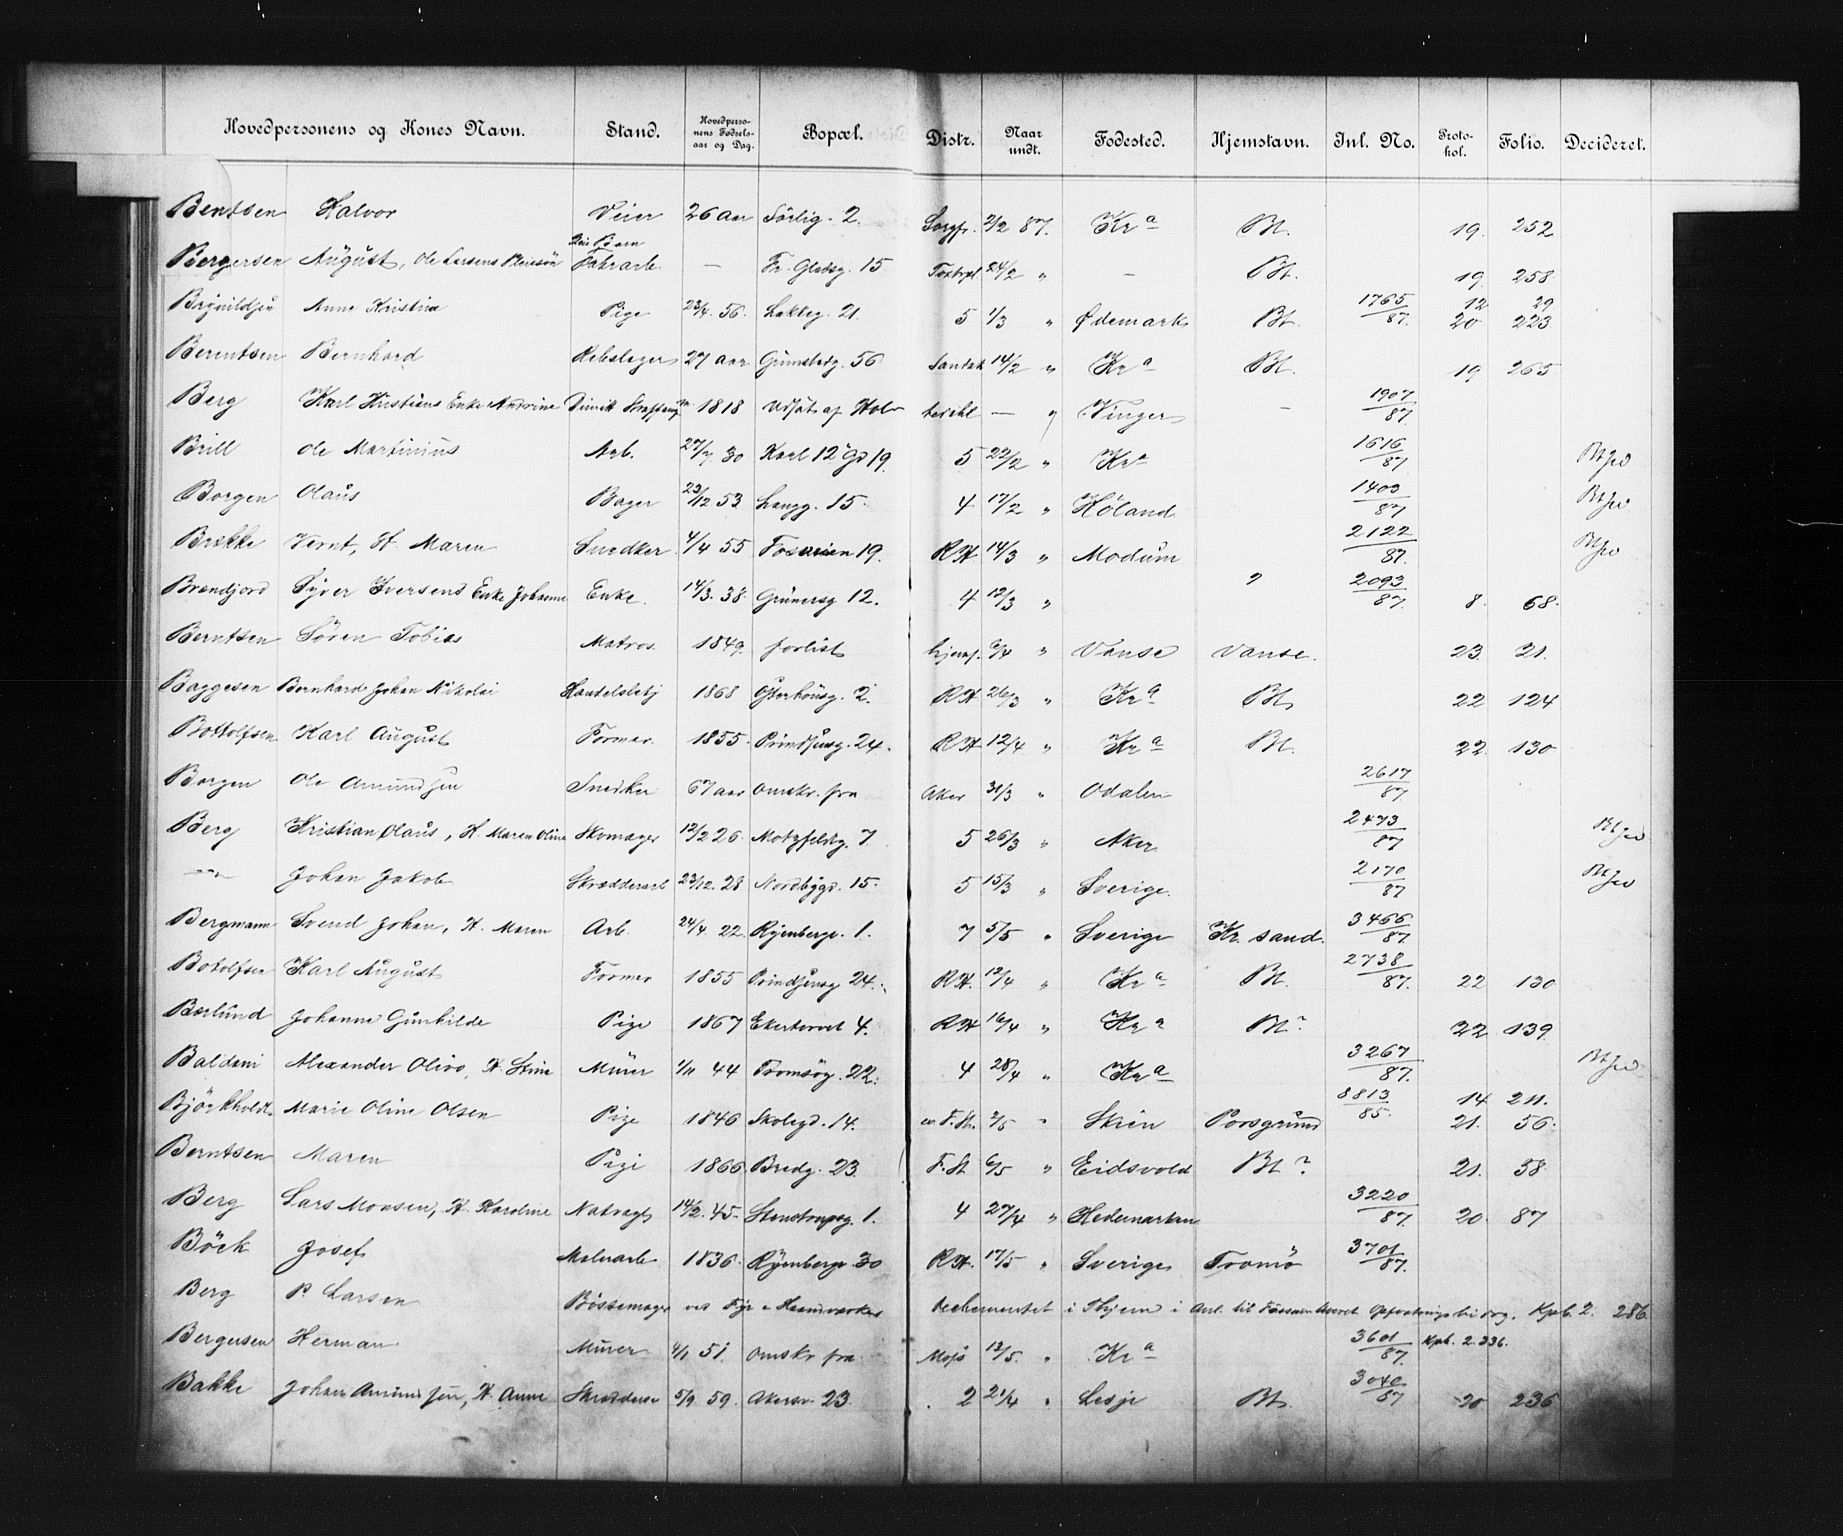 Hovedpersonens og Kones Navn. Stand. Hovedpersonens Fødselsaar og Dag. Bopæl. Distr. Naar undt. Fødested. Hjemstavn. Inl. No. Protokol. Folio. Decideret.
Bentsen Halvor 26 aar 2. 2/2 87. Kra Bt. 19. 252
Bergersen August, Ole Larsens Fabrarb. — Fr. Gladsg. 15 24/2 " — Bt. 19. 258
Anne Kristine Pige 23/4. 56. Lakkeg. 21. 5 1/3 " Ødemark Bt. 1765/87. 12 29 20 223
Berentsen Bernhard Rebslager 27 aar 56 14/2 " Kra Bt. 19 265
Berg Karl Kristians Enke Andrine 1818 — " Vinger — 1907/87.
Brill Ole Martinius Arb. 27/7 30 Karl 12 Gd 19. 5 22/2 " Kra 1616/87
Borgen Olaus Bager 23/12 53 Langg. 15. 4 17/2 " Höland 1403/87
Brekke Vernt, H. Maren Snedker 4/4 55 19. RH 14/3 " Modum 2122/87.
Syver Iversens Enke Johanne Enke. 14/3. 38. Grünersg 12. 4 12/3 " " 2093/87. 8. 68.
Berntsen Sören Tobias Matros 1849. forlist 6/4 " Vanse Vanse. 23. 21.
Baggesen Bernhard Johan Nikolai Handelsbetj 1868 2. RH 26/3 " Kra Bt. 22 124
Bottolfsen Karl August Former. 1855. Prindsensg. 24. RH 12/4 " Kra Bt. 22. 130
Borgen Ole Amundsen Snedker 67 aar omskr. fra Aker 31/3 " Odalen 2617/87.
Berg Kristian Olaus, H. Maren Oline Skomager 12/2 26. Motzfeldtg. 7. 5 26/3 " Aker 2473/87
—"— Johan Jakob Skrædderarb 23/12. 28 Nordbygd. 15. 5 15/3 " Sverige. 2170/87
Bergmann Svend Johan, H. Maren Arb. 24/4. 22. Ryenbergv. 1. 7 5/5 " Sverige Kr. sand. 3466/87
Botolfsen Karl August Former 1855 Prindsensg 24. RH. 12/4 " Kra Bt. 2738/87. 22 130
Bærlund Johanne Gunhilde Pige 1867 Ekertorvet 4. RH 16/4 " Kra Bt? 22 139.
Baldani Alexander Olivo, H. Stine Murer 1/11 44 Tromsög. 22. 4 28/4 " Kra 3267/87.
Björkholdt Marie Oline Olsen Pige 1846 Skolegd. 14. 2/5 " Skien Porsgrund 8813/85. 14 211. 21. 56.
Berntsen Maren Pige 1866 Bredg. 23. F. St 6/5 " Eidsvold Bt? 21. 58
Berg Lars Monsen, H. Karoline Natvagt 14/2. 45. Stenstrupsg 1. 4 27/4 " Hedemarken 3220/87. 20. 87
Böck Josef Malerarb. 1836. Ryenbergv 30 RH. 17/5 " Sverige Tromsö 3701/87.
Berg P. Larsen Bössemager Kpb. 2. 286
Bergersen Herman Murer 4/1 51. omskr. fra Moss 13/5. " Kra 3601/87. Kpb. 2. 336.
Bakke Johan Amundsen, H. Anne Skrædder 5/9 59. Akersv. 23. 2 21/4 " Lesje Bt. 3040/87 20 236